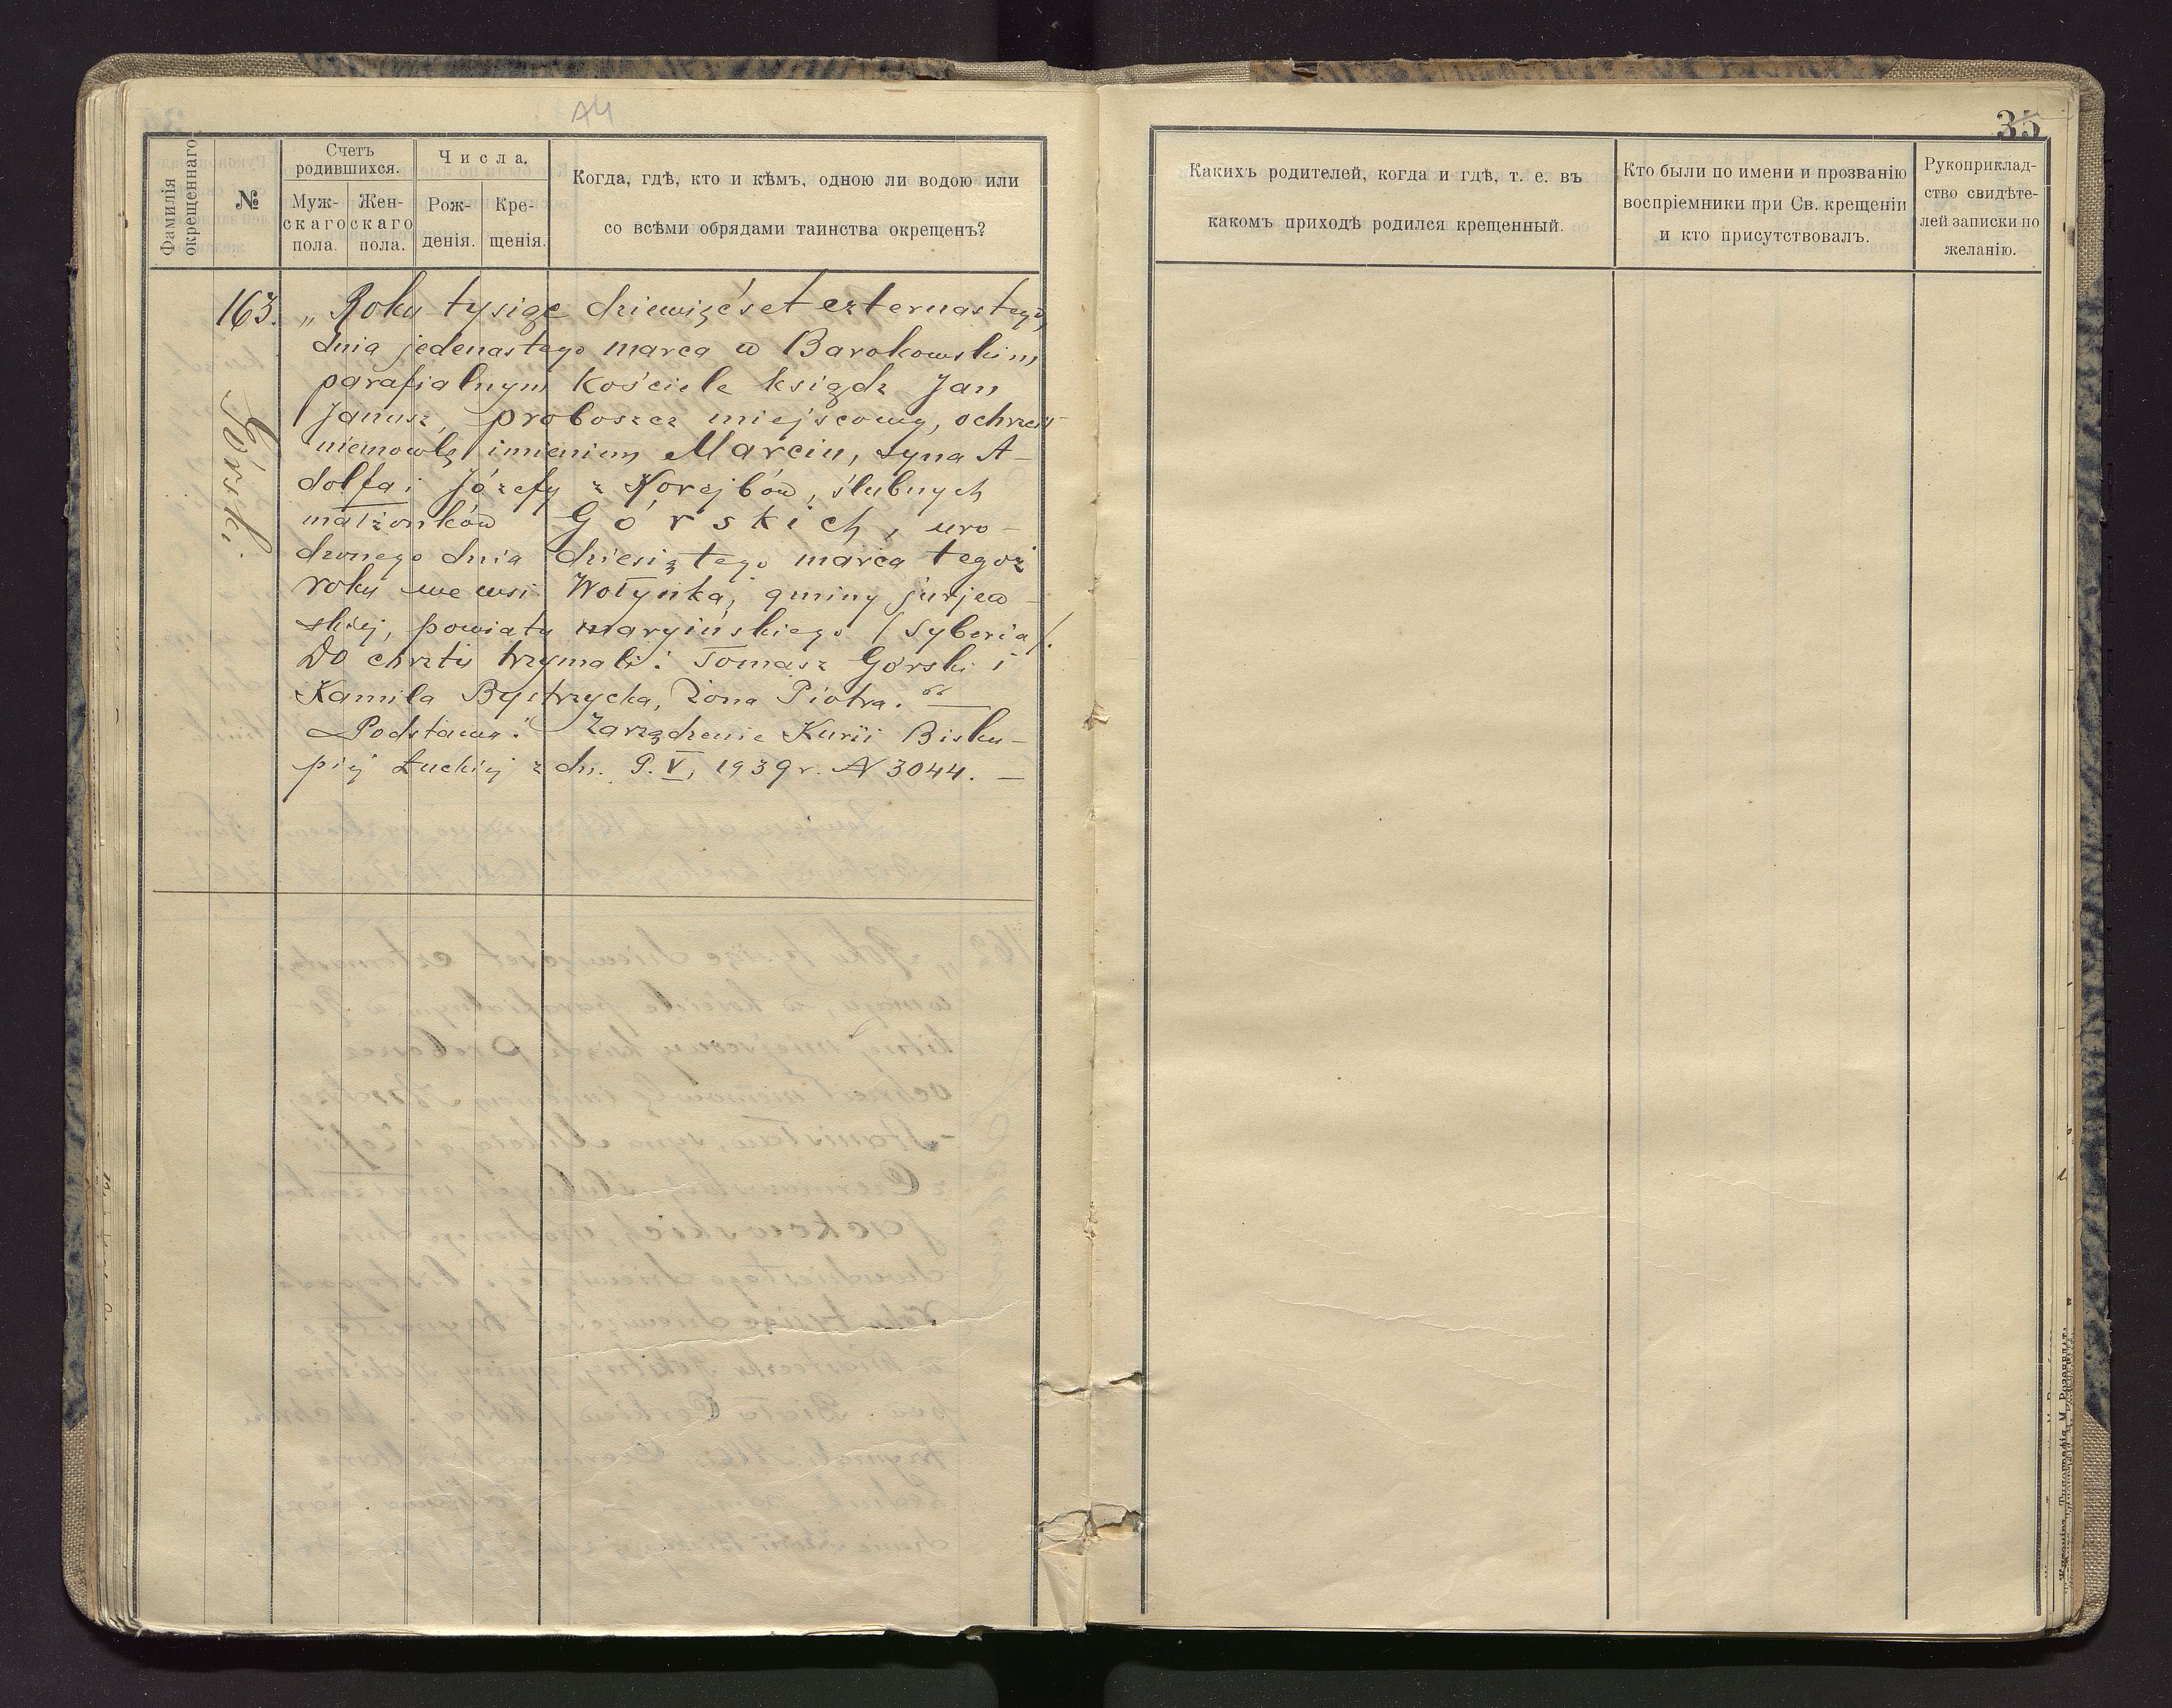 A4
35
Фамилія окрещеннаго
№
Счетъ родившихся.
Мужскаго пола.
Женскаго пола.
Числа.
Рожденія.
Крещенія.
Когда, гдѣ, кто и кѣмъ, одною ли водою или
со всѣми обрядами таинства окрещенъ?
Какихъ родителей, когда и гдѣ, т. е. въ
какомъ приходѣ родился крещенный.
Кто были по имени и прозванію
воспріемники при Св. крещеніи
и кто присутствовалъ.
Рукоприклад-
ство свидѣте-
лей записки по
желанію.
163.
Górski
„Roku tysiąc dziewięćset czternastego,
dnia jedenastego marca w Barokowskim
parafialnym kościele ksiądz Jan
Janusz, proboszcz miejscowy, ochrzcił
niemowlę imieniem Marcin, syna A-
dolfa i Józefy z Korejbów, ślubnych
małżonków Górskich, uro-
dzonego dnia dziesiątego marca tegoż
roku we wsi Wołyńka, gminy jurjew-
skiej, powiatu maryińskiego /Syberia/.
Do chrztu trzymali: Tomasz Górski i
Kamila Bystrzycka, żona Piotra.“ —
„Podstawa": Zarządzenie Kurii Bisku-
piej Łuckiej z dn. 9.V, 1939 r. N 3044. —